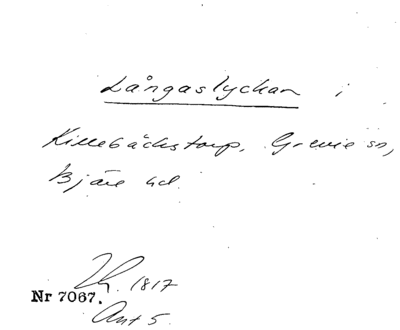 Långaslyckan i
Killebäckstorp, Grevie sn,
Bjäre hd.
1817
Nr 7067.
Ant 5.